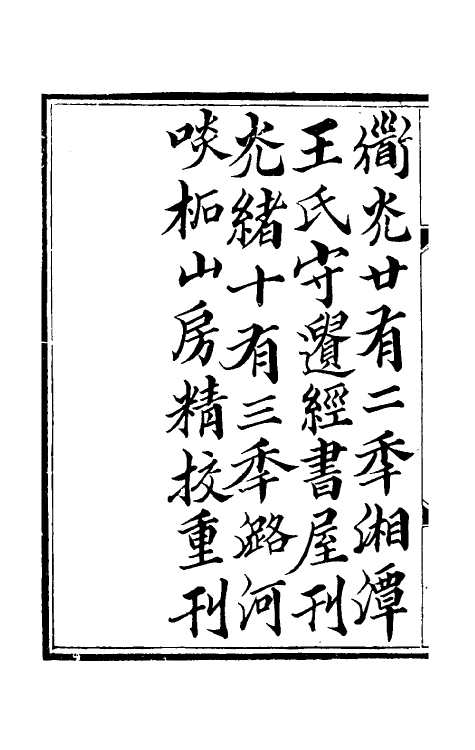 衟炛廿有二秊湘潭
王氏守遺經書屋刊
炛緒十有三秊潞河
啖柘山房精校重刊